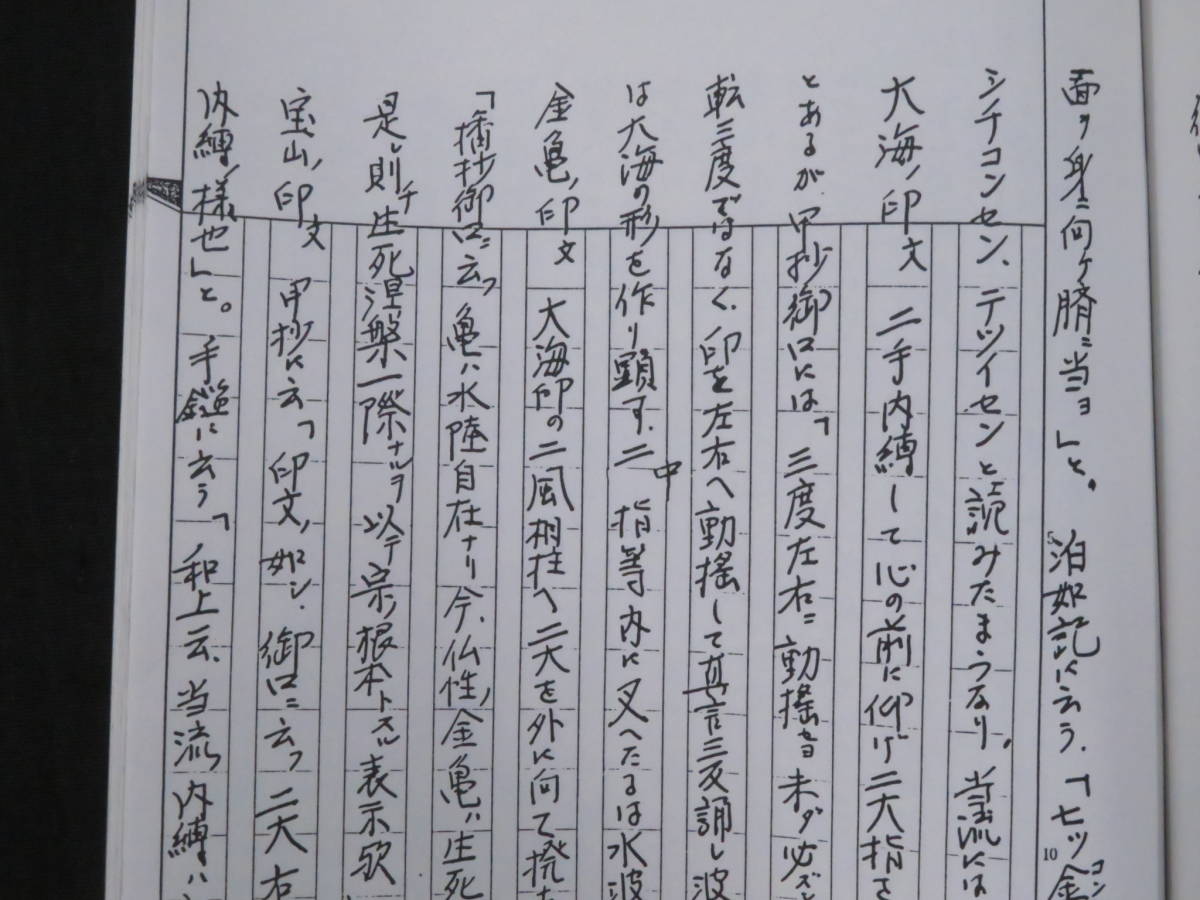 面ヲ身ニ向ケ臍ニ当ヨ」と。泊如記に云う。「七ツ金コン
シチコンセン、テツイセンと読みたまうなり。当流には
大海ノ印文 二手内縛して心の前に仰げ二大指を
とあるが、甲抄御口には、「三度左右ニ動揺 未ダ必ズ
転三度ではなく、印を左右へ動揺して真言三反誦し波
は大海の形を作り顕す、二中指等内に叉へたるは水波
金亀ノ印文 大海印の二風相拄へ二大を外に向て
「播抄御口ニ云フ 亀ハ水陸自在ナリ今、仏性ノ金亀ハ生死
是レ則チ生死涅槃一際ナルヲ以テ宗ノ根本トスル表示歟
宝山ノ印文 甲抄に云「印文ノ如シ. 御口ニ云フ 二大右
内縛ノ様也」と。手鑑に云う「和上云、当流ノ内縛ハ
5
10